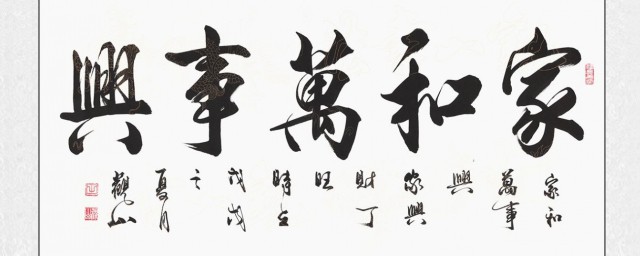 家和萬事興
家和
萬事
興
家興
財丁
旺
戊戌
之
夏月
觀山